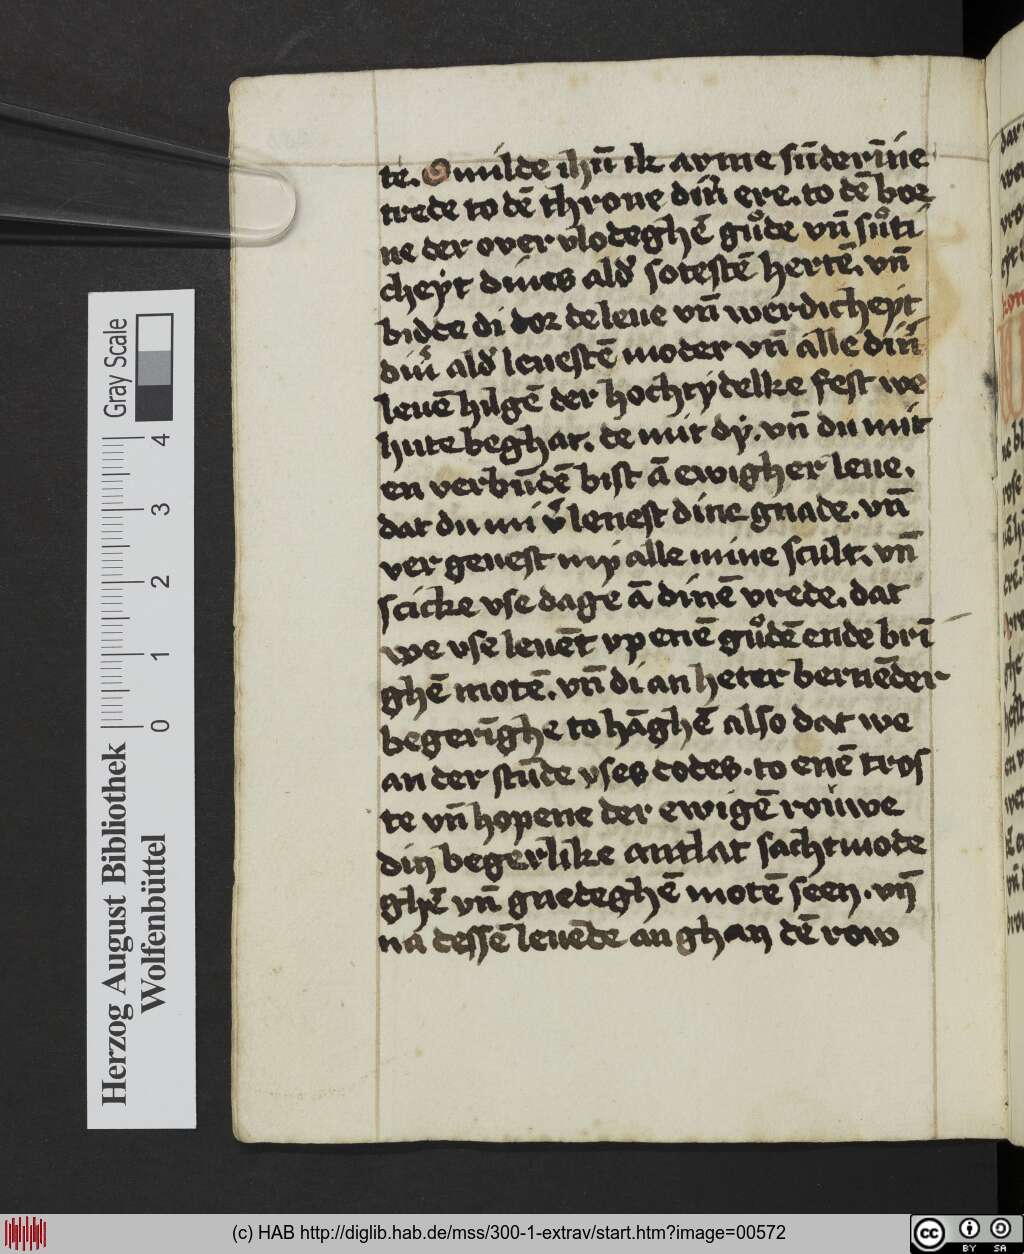 te. O milde ihū ik arme sūderīne
trede to dē throne din̄ ere. to dē bor
ne der over vlodeghē gůde vn̄ sůti
cheyt dines ald̕ sotestē hertē. vn̄
bidde di dor de leue vn̄ werdicheyt
din̄ ald̕ leuestē moder vn̄ alle din̄
leuē hilgē der hochtydelke fest we
hute beghat. de mit dy. vn̄ du mit
en verbūdē bist ā ewigher leue.
dat du mi v̓lenest dine gnade. vn̄
ver geuest my alle mine scult. vn̄
scicke vse dage ā dinē vrede. dat
we vse leuēt vp enē gůdē ende brī
ghē motē. vn̄ di an heter bernēder
begerīghe to hāghē also dat we
an der stūde vses dodes. to enē tros
te vn̄ hopene der ewigē rouwe
din begerlike antlat sachtmode
ghē vn̄ gnedeghē motē seen. vn̄
na dessē leuēde an ghan dē row
Gray Scale
4
3
2
1
0
Herzog August Bibliothek
Wolfenbüttel
(c) HAB http://diglib.hab.de/mss/300-1-extrav/start.htm?image=00572
cc BY SA